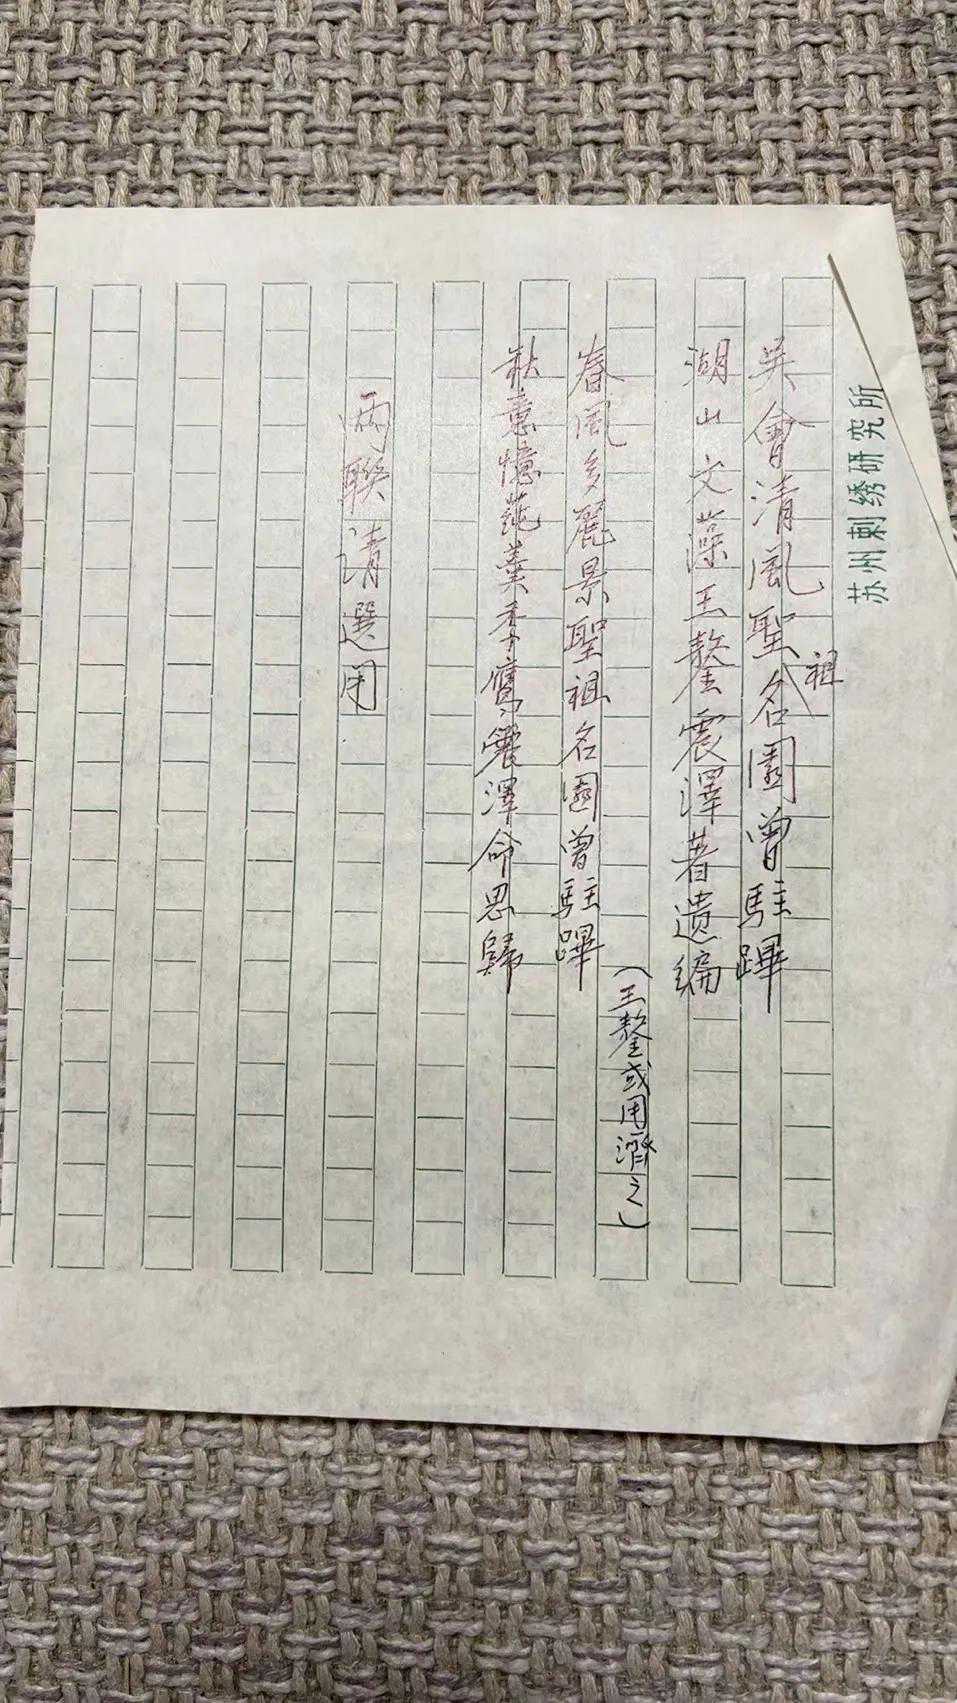 苏州刺绣研究所
吳會清風聖祖名園曾駐蹕
湖山文藻王鏊震澤著遺編
(王鏊或用濟之)
春風多麗景聖祖名園曾駐蹕
秋意憶蒓羹季鷹震澤命思歸
兩聯請選用